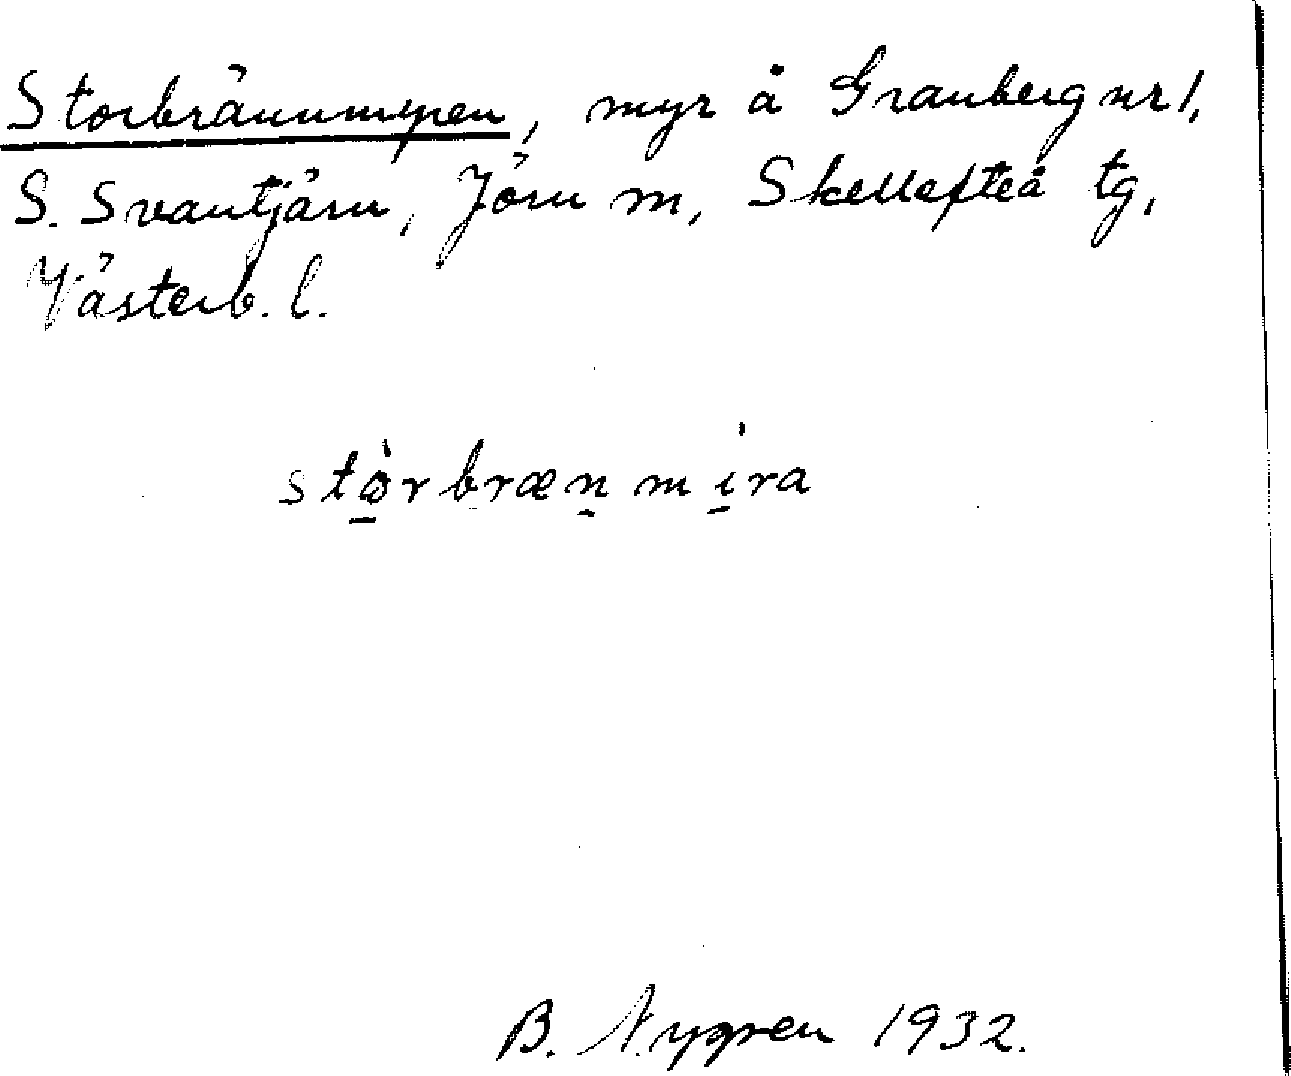 Storbrännmyren, myr å Granberg nr 1,
S. Svantjärn, Jörn sn, Skellefteå tg,
Västerb. l.
stò̱rbræn̠mi̠ra
B. Nygren 1932.